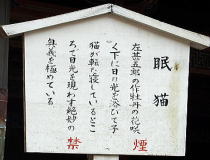 眠猫
左甚五郎の作牡丹の花咲
く下に日の光を浴びて子
猫が転た寝しているところ
で日光を現わす絶妙の
奥義を極めている
禁煙